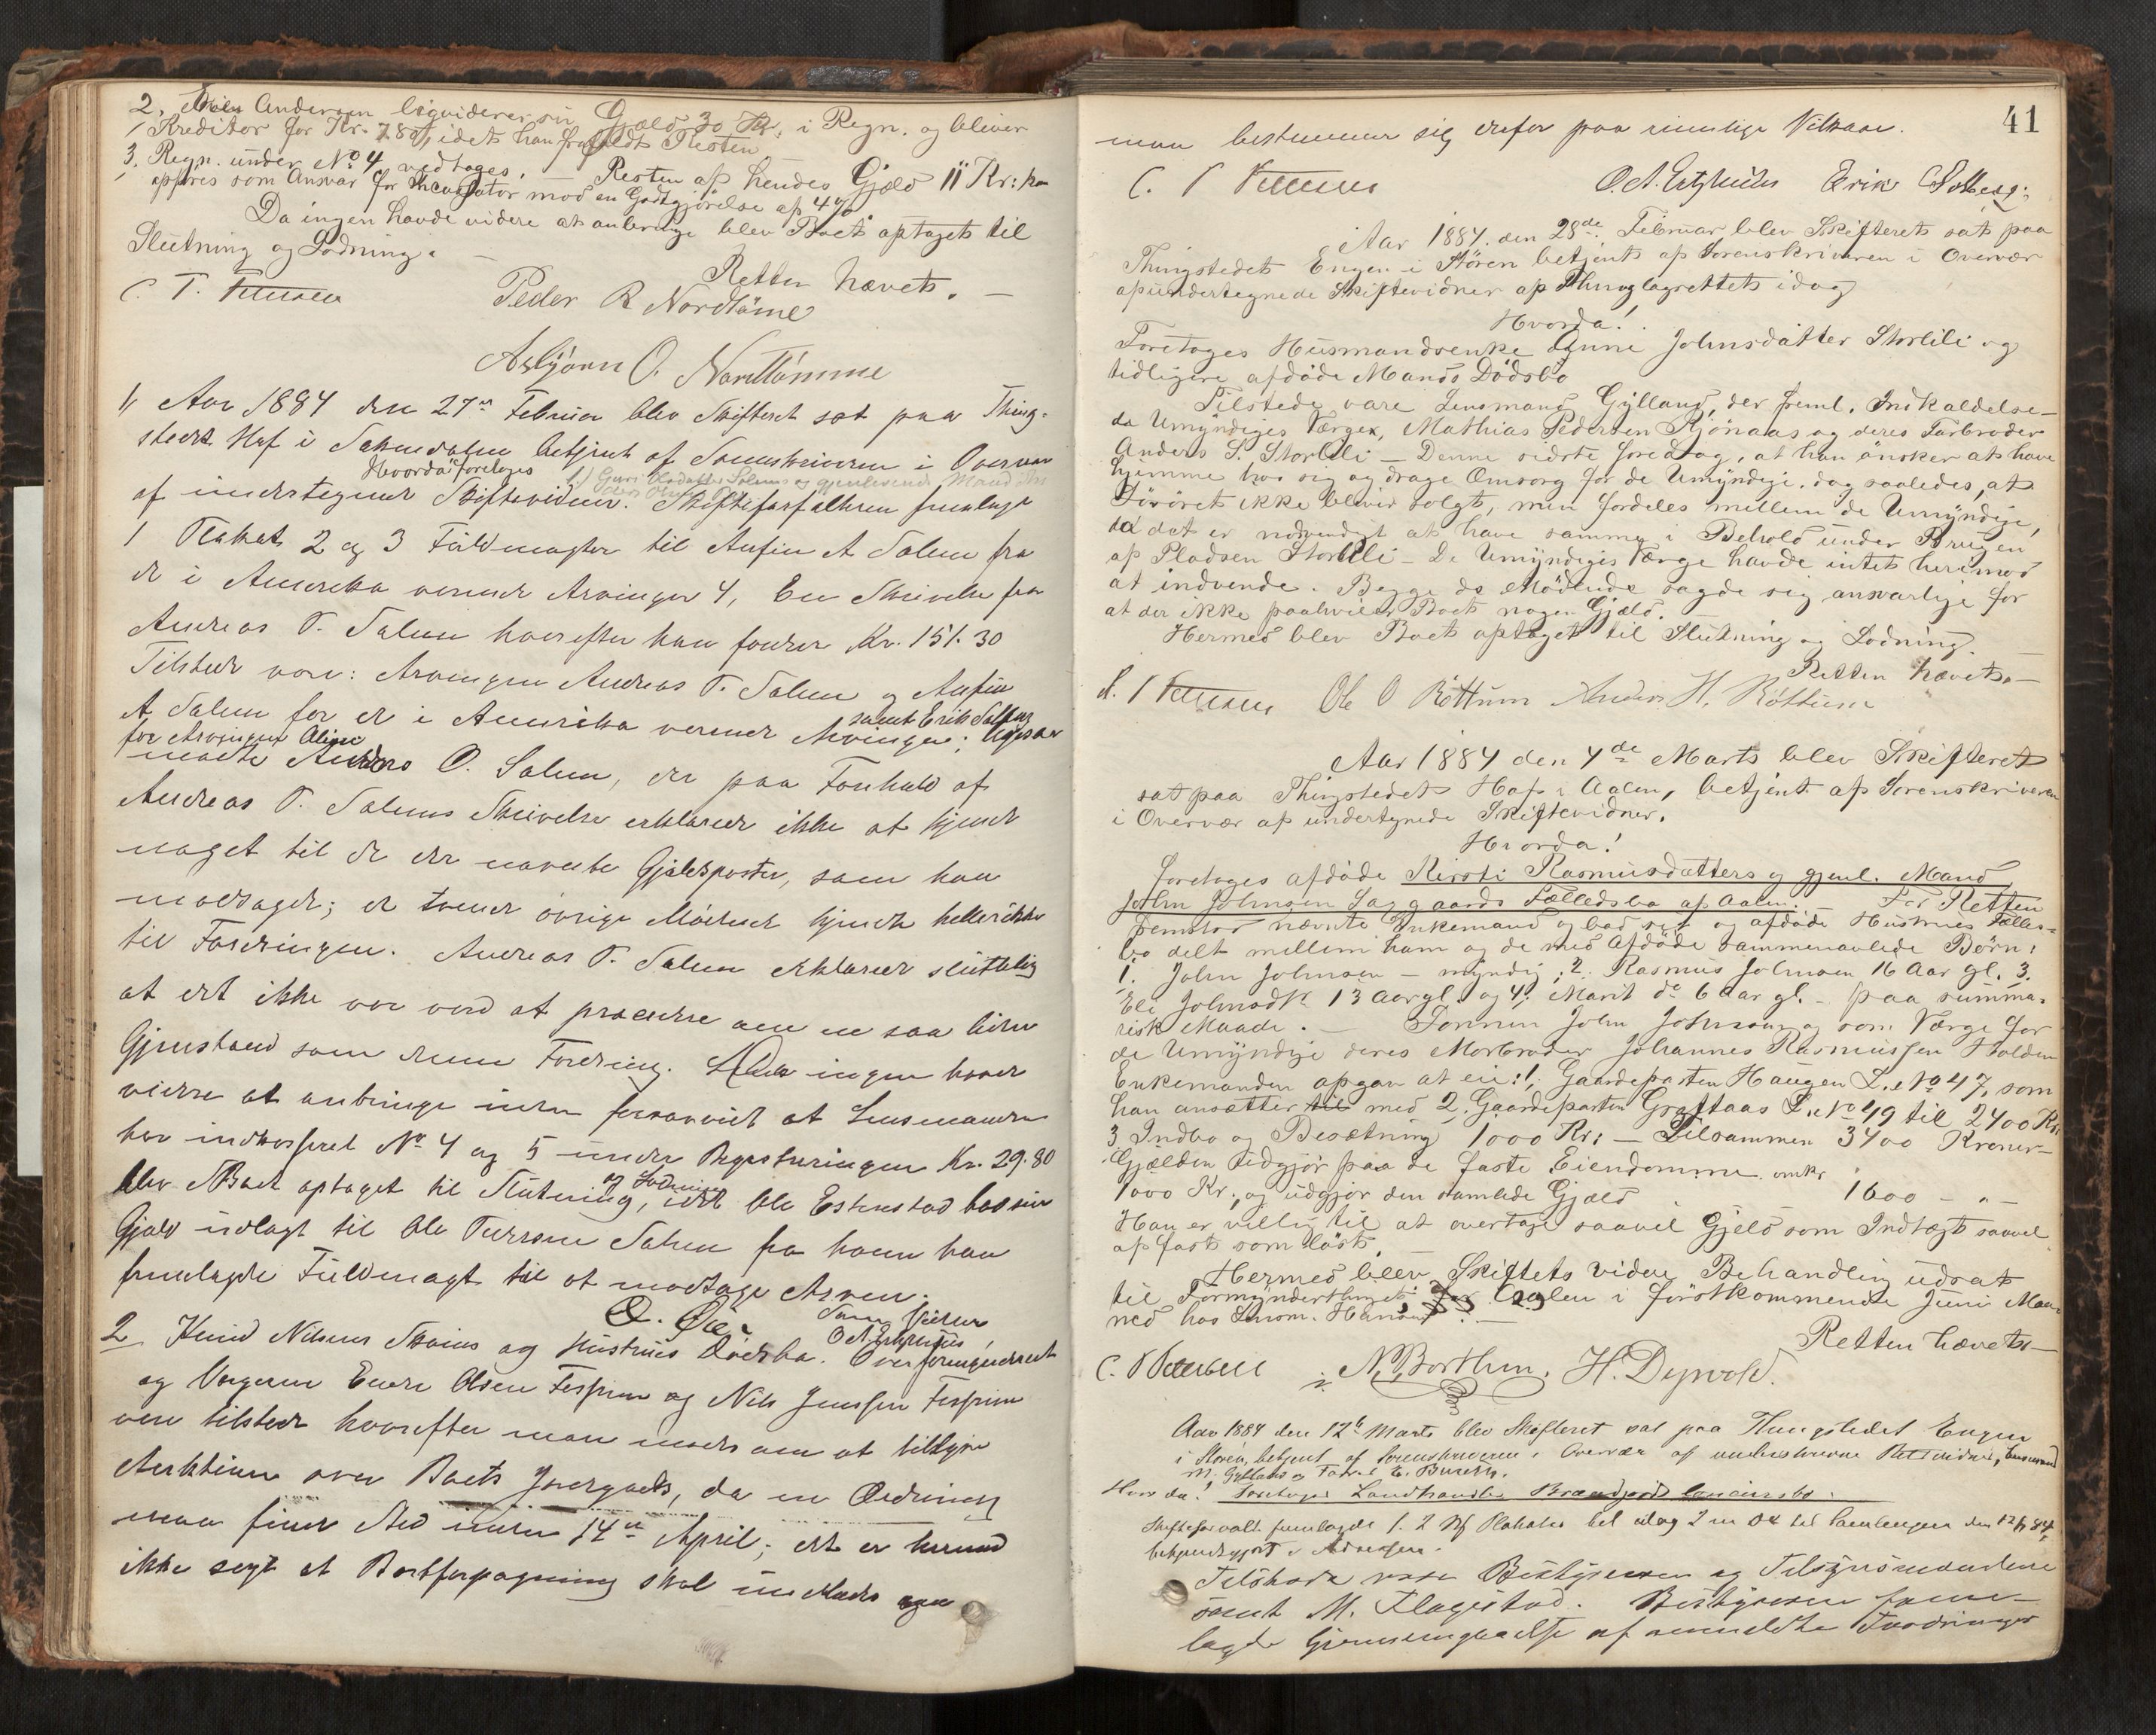 2. Andersen liqviderer sin Gjæld 30 Kr. i Regn. og bliver
Kreditor for Kr. 7.80, idet han frafaldt Resten
3. Regn. under No 4 vedtages. — Resten af hendes Gjæld 11 Kr: kan
opføres som Ansvar for mod en Godtgjörelse af 4 %
Da ingen havde videre at anbringe blev Boet optaget til
Slutning og Lodning. —
Retten hævet. —
C. T. Petersen Peder R Nordtömme
Asbjörn O. Nordtömme
1, Aar 1884 den 27de Februar blev Skifteret sat paa Thing-
stedet Hof i Soknedalen betjent af Sorenskriveren i Overvær
Hvorda foretages 1.) Guri Olsdatter Solems og gjenlevende Mand
af undertegnede Skiftevidner. Skifteforfalteren fremlagde
1 Plakat 2 og 3 Fuldmagter til Anfin A Solem fra
de i Amerika værende Arvinger 4, En Skrivelse fra
Andreas T. Solem hvorefter han fordrer Kr. 151.30
Tilstede vare: Arvingen Andreas T. Solem og Anfin
A Solem for de i Amerika værende Arvinger; samt Erik Solberg
for Arvingen Aline
mødte Anders O. Solem, der paa Forehold af
Andreas T. Solems Skrivelse erklærede ikke at kjende
noget til de der nævnte Gjældsposter, som han
modsagde; de tvende övrige Mödende kjendte heller ikke
til Fordringen. Andreas T. Solem erklærede sluttelig
at det ikke var værd at procedere om en saa liden
Gjenstand som denne Fordring. Da ingen havde
videre at anbringe uden forsaavidt at Lensmanden
har indkasseret No 4 og 5 under Registreringen Kr. 29.80
blev Boet optaget til Slutning og Lodning, idet Ole Estenstad har sin
Gjæld udlagt til Ole Tursson Solem fra hvem han
fremlagde Fuldmagt til at modtage Arven.
2 Knud Nilsens og Hustrues Dödsbo. Overformynderiet
og Værgerne Endre Olsen Fossum og Nils Jenssen Fossum
vare tilstede hvorefter man enedes om at tillyse
Auktion over Boets Jordgods, da en Ordning
maa finde Sted inden 14de April; det er hermed
ikke sagt at Bortforpagtning skal undlades om
41
man bestemmer sig derfor paa rimelige Vilkaar.
C. T Petersen O. A. Erik Solberg:
Aar 1884. den 28de Februar blev Skifteret sat paa
Thingstedet Engen i Stören betjent af Sorenskriveren i Overvær
af undertegnede Skiftevidner af Thinglagrettet idag
Hvorda!
Foretoges Husmandsenke Anne Johnsdatter Storlili og
tidligere afdöde Mands Dödsbo
Tilstede vare Lensmand Gylland, der freml. Indkaldelse —
de Umyndiges Værge, Mathias Pedersen Kjönaas og deres Farbroder
Anders S. Storlili — Denne sidste foredrog, at han önsker at have
hjemme hos sig og drage Omsorg for de Umyndige, dog saaledes, at
Lösöret ikke bliver solgt, men fordeles mellem de Umyndige,
da det er nødvendigt at have samme i Behold under Brugen
af Pladsen Storlili — De Umyndiges Værge havde intet herimod
at indvende. Begge de Mödende sagde sig ansvarlige for
at der ikke paahviler Boet nogen Gjæld.
Hermed blev Boet optaget til Slutning og Lodning.
Retten hævet. —
C. T Petersen Ole O Röttum Anders H. Röttum
Aar 1884 den 4de Marts blev Skifteret
sat paa Thingstedet Hof i Aalen, betjent af Sorenskriveren
i Overvær af undertegnede Skiftevidner.
Hvorda!
foretoges afdöde Kirsti Rasmusdatters og gjenl. Mand
John Johnsen Saggaards Fælledsbo af Aalen. For Retten
fremstod nævnte Enkemand og bad sit og afdöde Hustrues Fælles-
bo delt mellem ham og de med Afdöde sammenavlede Börn:
1. John Johnsen — myndig; 2. Rasmus Johnsen 16 Aar gl. 3.
Eli Johnsdtr 13 Aar gl. og 4. Marit do 6 Aar gl. — paa summa-
risk Maade. — Sönnen John Johnsen og som Værge for
de Umyndige deres Morbroder Johannes Rasmussen Holden
Enkemanden opgav at eie: 1. Gaardeparten Haugen L. No 47, som
han ansætter til med 2. Gaardeparten Graftaas L. No 49 til 2400 Kr.
3 Indbo og Besætning 1000 Kr: — Tilsammen 3400 Kroner —
Gjælden udgjör paa de faste Eiendomme omkr
1000 Kr, og udgjör den samlede Gjæld 1600 - " -
Han er villig til at overtage saavel Gjeld som Indtægt saavel
af fast som löst.
Hermed blev Skiftets videre Behandling udsat
til Formynderthinget for Aalen i förstkommende Juni Maa-
ned hos Lensm. —
Retten hævet. —
C. T Petersen N. Borthen. H. Dypvold.
Aar 1884 den 12te Marts blev Skifteret sat paa Thingstedet Engen
i Stören, betjent af Sorenskriveren i Overvær af underskrevne Retsvidner, Lensmand
M. Gylland og E.
Hvorda! Foretoges Landhandler Concursbo.
Skifteforvalt. fremlagde 1. 2 Plakater til idag 2 en do til Samlingen den
bekjendtgjort i Adressen.
Tilstede vare Bestyreren og Tilsynsmændene
samt M. Flagestad. Bestyreren frem-
lagde Gjennemgaaelse af anmeldte Fordringer